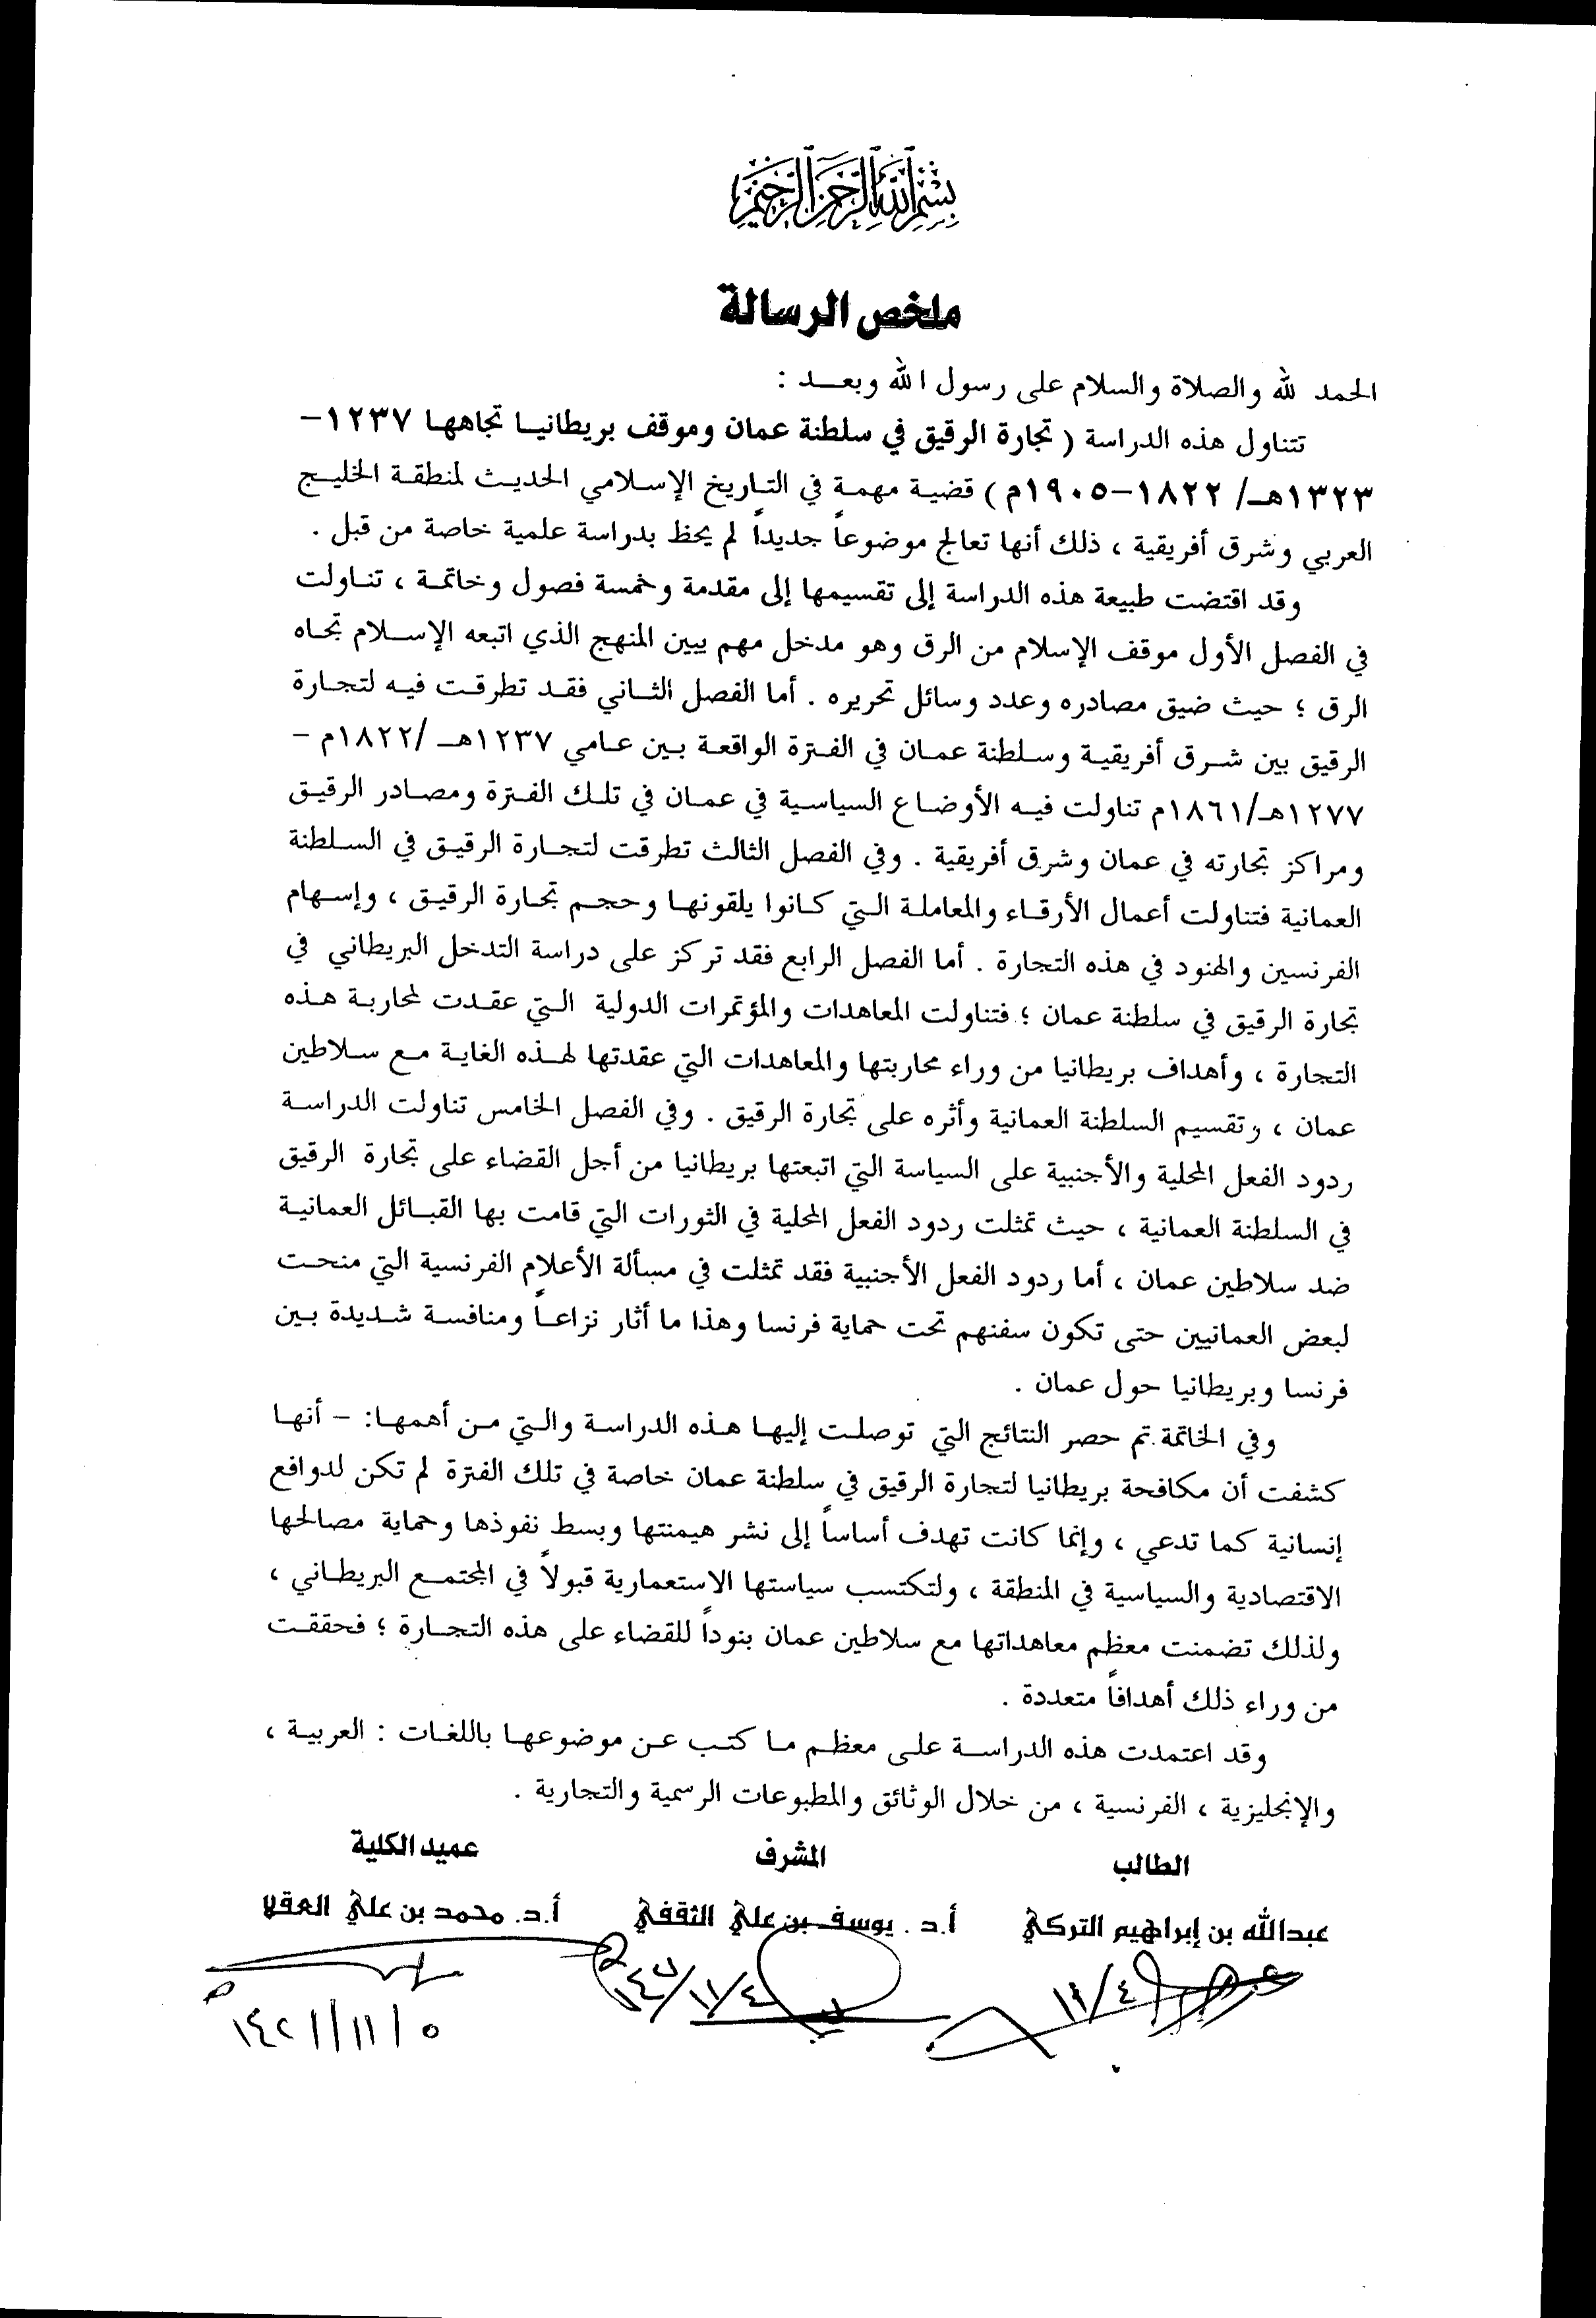 بسم الله الرحمن الرحيم
ملخص الرسالة
الحمد لله والصلاة والسلام على رسول الله وبعد :
تتناول هذه الدراسة ( تجارة الرقيق في سلطنة عمان وموقف بريطانيا تجاهها ١٢٣٧-
١٣٢٣هـ/ ١٨٢٢-١٩٠٥م ) قضية مهمة في التاريخ الإسلامي الحديث لمنطقة الخليج
العربي وشرق أفريقية ، ذلك أنها تعالج موضوعاً جديداً لم يحظ بدراسة علمية خاصة من قبل .
وقد اقتضت طبيعة هذه الدراسة إلى تقسيمها إلى مقدمة وخمسة فصول وخاتمة ، تناولت
في الفصل الأول موقف الإسلام من الرق وهو مدخل مهم يبين المنهج الذي اتبعه الإسلام تجاه
الرق ؛ حيث ضيق مصادره وعدد وسائل تحريره . أما الفصل الثاني فقد تطرقت فيه لتجارة
الرقيق بين شرق أفريقية وسلطنة عمان في الفترة الواقعة بين عامي ١٢٣٧هـ /١٨٢٢م -
١٢٧٧هـ/١٨٦١م تناولت فيه الأوضاع السياسية في عمان في تلك الفترة ومصادر الرقيق
ومراكز تجارته في عمان وشرق أفريقية . وفي الفصل الثالث تطرقت لتجارة الرقيق في السلطنة
العمانية فتناولت أعمال الأرقاء والمعاملة التي كانوا يلقونها وحجم تجارة الرقيق ، وإسهام
الفرنسين والهنود في هذه التجارة . أما الفصل الرابع فقد تركز على دراسة التدخل البريطاني في
تجارة الرقيق في سلطنة عمان ؛ فتناولت المعاهدات والمؤتمرات الدولية التي عقدت لمحاربة هذه
التجارة ، وأهداف بريطانيا من وراء محاربتها والمعاهدات التي عقدتها لهذه الغاية مع سلاطين
عمان ، وتقسيم السلطنة العمانية وأثره على تجارة الرقيق . وفي الفصل الخامس تناولت الدراسة
ردود الفعل المحلية والأجنبية على السياسة التي اتبعتها بريطانيا من أجل القضاء على تجارة الرقيق
في السلطنة العمانية ، حيث تمثلت ردود الفعل المحلية في الثورات التي قامت بها القبائل العمانية
ضد سلاطين عمان ، أما ردود الفعل الأجنبية فقد تمثلت في مسألة الأعلام الفرنسية التي منحت
لبعض العمانيين حتى تكون سفنهم تحت حماية فرنسا وهذا ما أثار نزاعاً ومنافسة شديدة بين
فرنسا وبريطانيا حول عمان .
وفي الخاتمة تم حصر النتائج التي توصلت إليها هذه الدراسة والتي من أهمها: - أنها
كشفت أن مكافحة بريطانيا لتجارة الرقيق في سلطنة عمان خاصة في تلك الفترة لم تكن لدوافع
إنسانية كما تدعي ، وإنما كانت تهدف أساساً إلى نشر هيمنتها وبسط نفوذها وحماية مصالحها
الاقتصادية والسياسية في المنطقة ، ولتكتسب سياستها الاستعمارية قبولاً في المجتمع البريطاني ،
ولذلك تضمنت معظم معاهداتها مع سلاطين عمان بنوداً للقضاء على هذه التجارة ؛ فحققت
من وراء ذلك أهدافاً متعددة .
وقد اعتمدت هذه الدراسة على معظم ما كتب عن موضوعها باللغات : العربية ،
والإنجليزية ، الفرنسية ، من خلال الوثائق والمطبوعات الرسمية والتجارية .
الطالب المشرف عميد الكلية
عبدالله بن إبراهيم التركي أ.د . يوسف بن علي الثقفي أ.د. محمد بن علي العقلا
١٤٢١/١١/٥